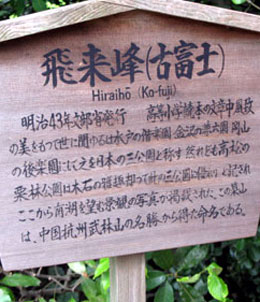 飛来峰(古富士)
Hiraihō (Ko-fuji)
明治43年文部省発行 高等小学読本の文章中,園技
の美をもって世に聞ゆるは水戸の偕楽園 金沢の兼六園 岡山
の後楽園にして之を日本の三公園と称す 然れども高松の
栗林公園は木石の雅趣却って此の三公園に優れり と記され
ここから前湖を望む景観の写真が掲載された。この築山
は、中国杭州武林山の名勝から得た命名である。